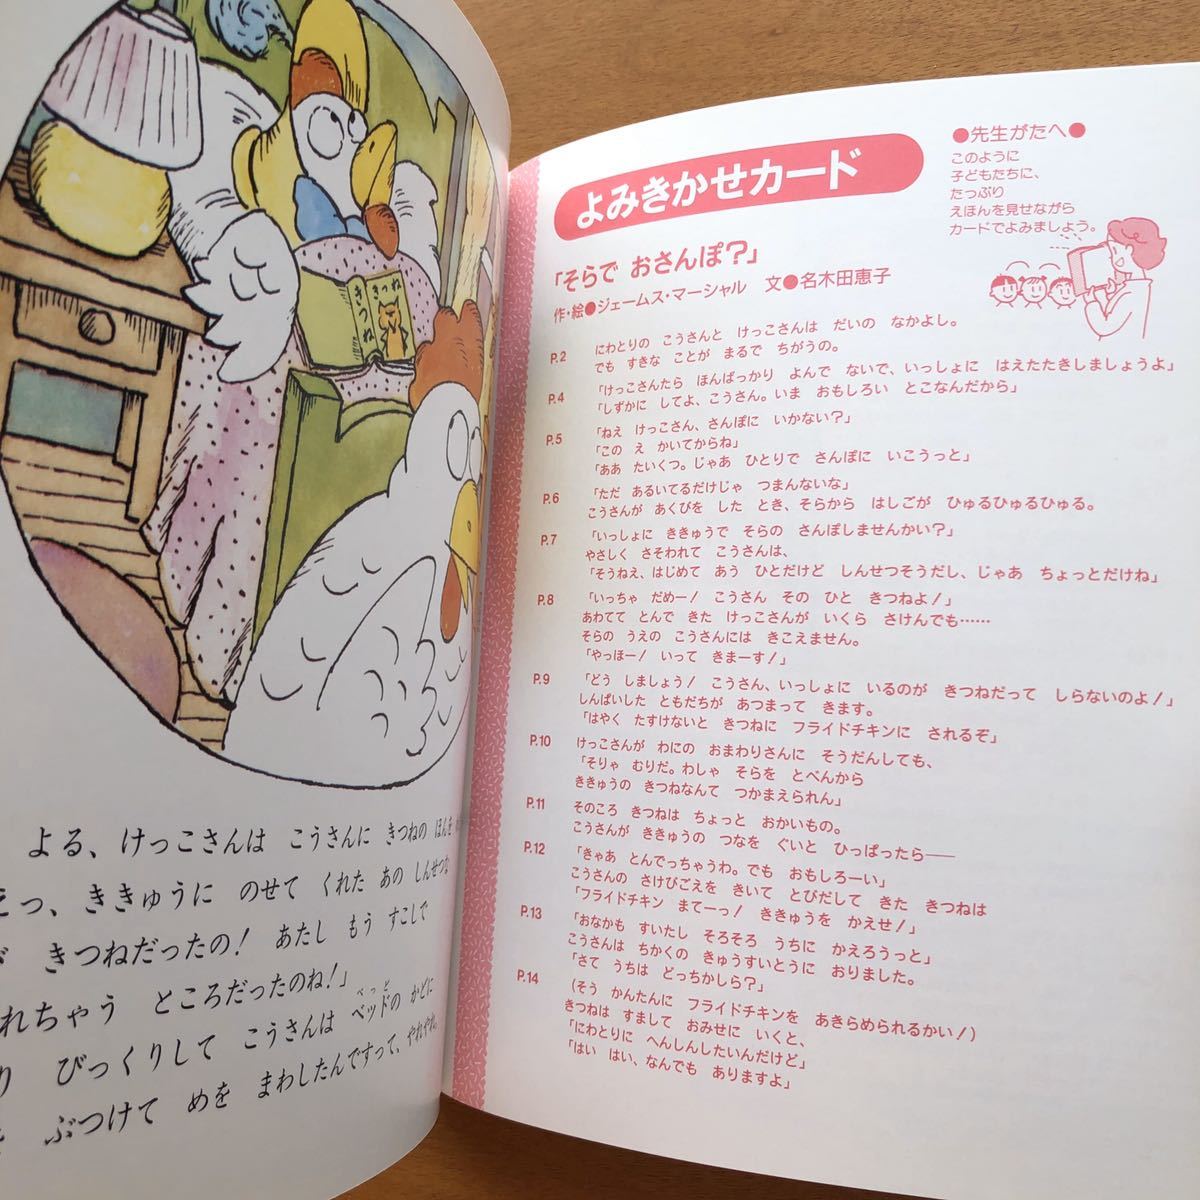 きつね
きつね
よる、けっこさんは こうさんに きつねの ほんを
っ、ききゅうに のせて くれた あの しんせつな
きつねだったの! あたし もう すこしで
れちゃう ところだったのね!」
びっくりして こうさんは ベッドの かどに
べっど
ぶつけて めを まわしたんですって、やれやれ。
よみきかせカード
●先生がたへ●
このように
子どもたちに、
たっぷり
えほんを見せながら
カードでよみましょう。
「そらで おさんぽ?」
作・絵●ジェームス・マーシャル 文●名木田恵子
P.2 にわとりの こうさんと けっこさんは だいの なかよし。
でも すきな ことが まるで ちがうの。
P.4 「けっこさんたら ほんばっかり よんで ないで、いっしょに はえたたきしましょうよ」
「しずかに してよ、こうさん。いま おもしろい とこなんだから」
P.5 「ねえ けっこさん、さんぽに いかない?」
「この え かいてからね」
「ああ たいくつ。じゃあ ひとりで さんぽに いこうっと」
P.6 「ただ あるいてるだけじゃ つまんないな」
こうさんが あくびを した とき、そらから はしごが ひゅるひゅるひゅる。
P.7 「いっしょに ききゅうで そらの さんぽしませんかい?」
やさしく さそわれて こうさんは、
「そうねえ、はじめて あう ひとだけど しんせつそうだし、じゃあ ちょっとだけね」
P.8 「いっちゃ だめー! こうさん その ひと きつねよ!」
あわてて とんで きた けっこさんが いくら さけんでも……
そらの うえの こうさんには きこえません。
「やっほー! いって きまーす!」
P.9 「どう しましょう! こうさん、いっしょに いるのが きつねだって しらないのよ!」
しんぱいした ともだちが あつまって きます。
「はやく たすけないと きつねに フライドチキンに されるぞ」
P.10 けっこさんが わにの おまわりさんに そうだんしても、
「そりゃ むりだ。わしゃ そらを とべんから
ききゅうの きつねなんて つかまえられん」
P.11 そのころ きつねは ちょっと おかいもの。
こうさんが ききゅうの つなを ぐいと ひっぱったら——
P.12 「きゃあ とんでっちゃうわ。でも おもしろーい」
こうさんの さけびごえを きいて とびだして きた きつねは
「フライドチキン まてーっ! ききゅうを かえせ!」
P.13 「おなかも すいたし そろそろ うちに かえろうっと」
こうさんは ちかくの きゅうすいとうに おりました。
「さて うちは どっちかしら?」
P.14 (そう かんたんに フライドチキンを あきらめられるかい!)
きつねは すまして おみせに いくと、
「にわとりに へんしんしたいんだけど」
「はい はい、なんでも ありますよ」